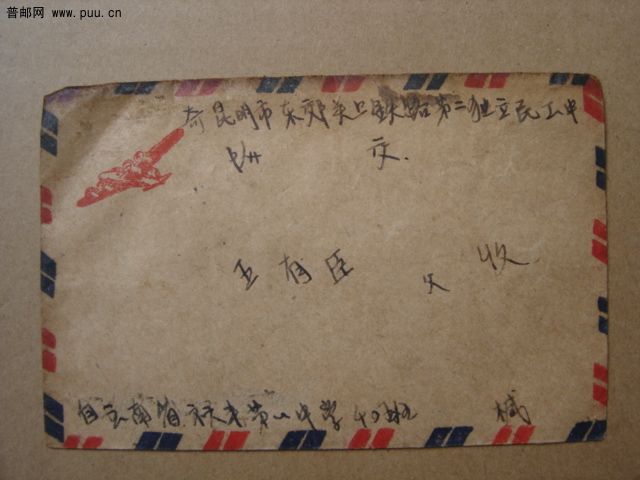 普邮网 www.puu.cn
寄昆明市东郊关上铁路第二独立民工中
队 交
王有臣 父 收
自云南省禄丰第一中学40班 缄